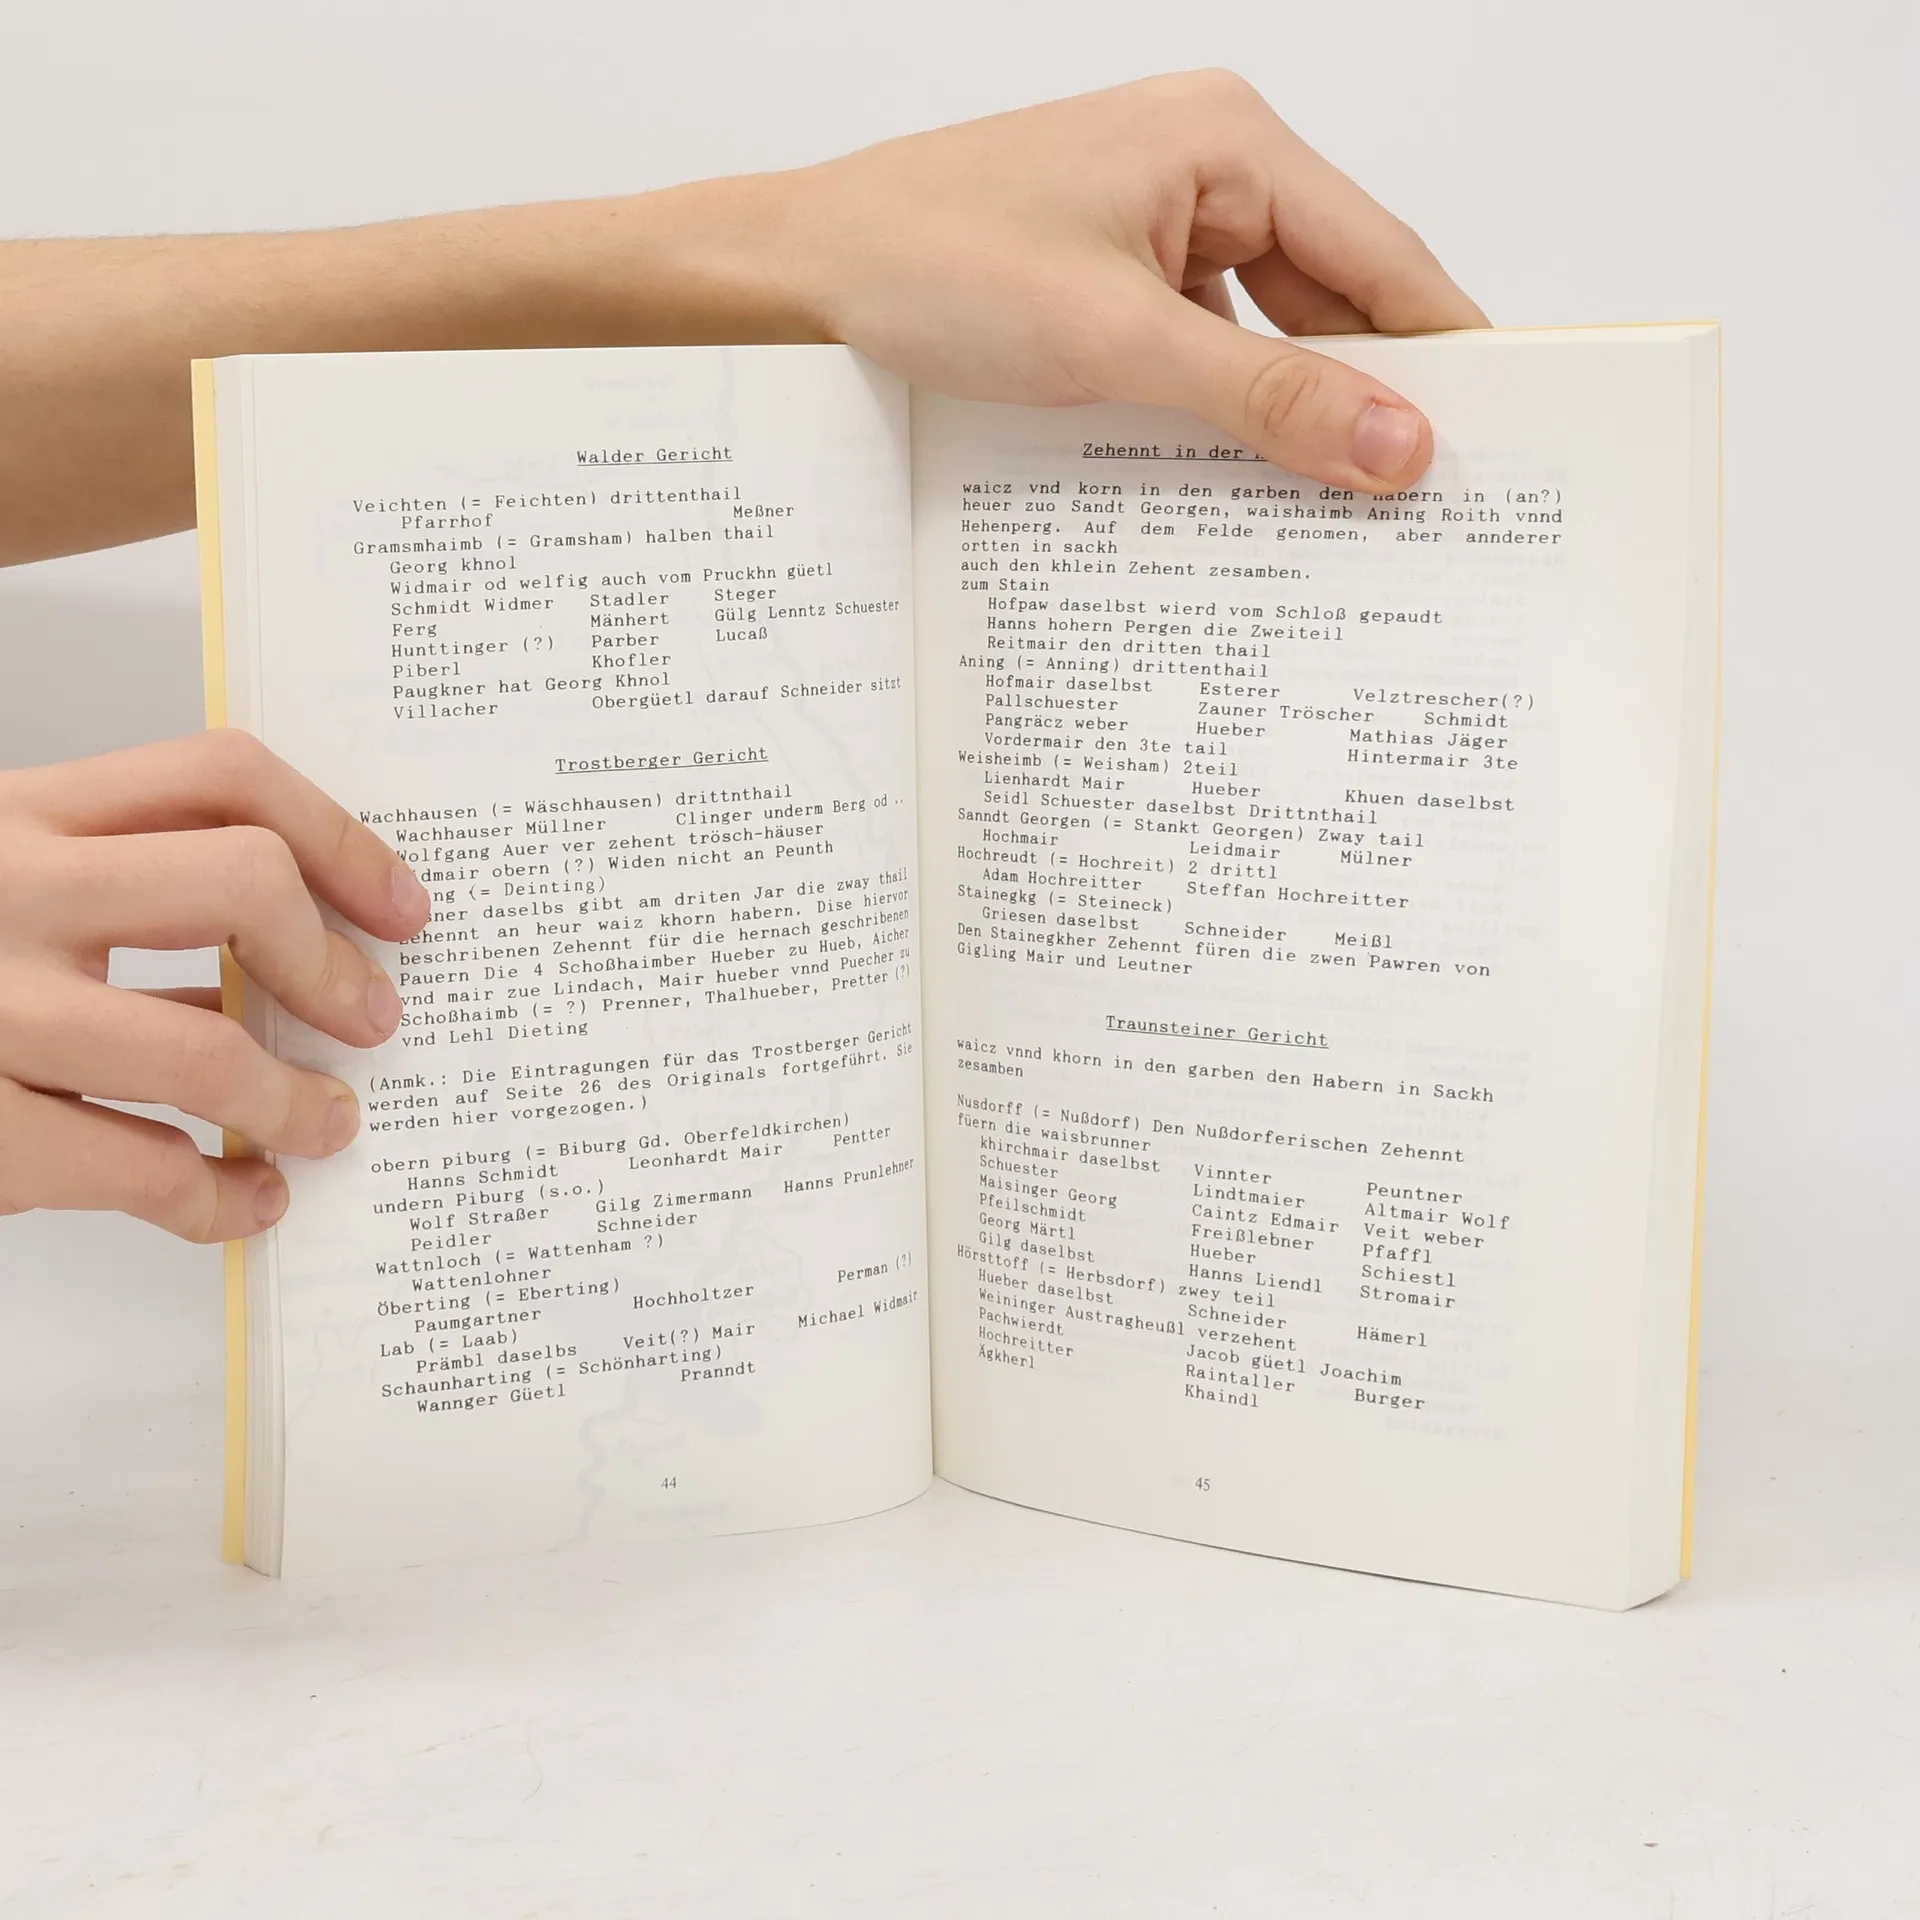 Walder Gericht
Veichten (= Feichten) drittenthail
Pfarrhof Meßner
Gramsmhaimb (= Gramsham) halben thail
Georg khnol
Widmair od welfig auch vom Pruckhn güetl
Schmidt Widmer Stadler Steger
Ferg Mänhert Gülg Lenntz Schuester
Hunttinger (?) Parber Lucaß
Piberl Khofler
Paugkner hat Georg Khnol
Villacher Obergüetl darauf Schneider sitzt
Trostberger Gericht
Wachhausen (= Wäschhausen) drittnthail
Wachhauser Müllner Clinger underm Berg od ..
Wolfgang Auer ver zehent trösch-häuser
obern (?) Widen nicht an Peunth
(= Deinting)
daselbs gibt am driten Jar die zway thail
Zehennt an heur waiz khorn habern. Dise hiervor
beschribenen Zehennt für die hernach geschribenen
Pauern Die 4 Schoßhaimber Hueber zu Hueb, Aicher
vnd mair zue Lindach, Mair hueber vnnd Puecher zu
Schoßhaimb (= ?) Prenner, Thalhueber, Pretter (?)
vnd Lehl Dieting
(Anmk.: Die Eintragungen für das Trostberger Gericht
werden auf Seite 26 des Originals fortgeführt. Sie
werden hier vorgezogen.)
obern piburg (= Biburg Gd. Oberfeldkirchen)
Hanns Schmidt Leonhardt Mair Pentter
undern Piburg (s.o.)
Wolf Straßer Gilg Zimermann Hanns Prunlehner
Peidler Schneider
Wattnloch (= Wattenham ?)
Wattenlohner
Öberting (= Eberting)
Paumgartner Hochholtzer Perman (?)
Lab (= Laab)
Prämbl daselbs Veit(?) Mair Michael Widmair
Schaunharting (= Schönharting)
Wannger Güetl Pranndt
44
Zehennt in der
waicz vnd korn in den garben den habern in (an?)
heuer zuo Sandt Georgen, waishaimb Aning Roith vnnd
Hehenperg. Auf dem Felde genomen, aber annderer
ortten in sackh
auch den khlein Zehent zesamben.
zum Stain
Hofpaw daselbst wierd vom Schloß gepaudt
Hanns hohern Pergen die Zweiteil
Reitmair den dritten thail
Aning (= Anning) drittenthail
Hofmair daselbst Esterer Velztrescher(?)
Pallschuester Zauner Tröscher Schmidt
Pangräcz weber Hueber Mathias Jäger
Vordermair den 3te tail Hintermair 3te
Weisheimb (= Weisham) 2teil
Lienhardt Mair Hueber Khuen daselbst
Seidl Schuester daselbst Drittnthail
Sanndt Georgen (= Stankt Georgen) Zway tail
Hochmair Leidmair Mülner
Hochreudt (= Hochreit) 2 drittl
Adam Hochreitter Steffan Hochreitter
Stainegkg (= Steineck)
Griesen daselbst Schneider Meißl
Den Stainegkher Zehennt füren die zwen Pawren von
Gigling Mair und Leutner
Traunsteiner Gericht
waicz vnnd khorn in den garben den Habern in Sackh
zesamben
Nusdorff (= Nußdorf) Den Nußdorferischen Zehennt
füern die waisbrunner
khirchmair daselbst Vinnter Peuntner
Schuester Lindtmaier Altmair Wolf
Maisinger Georg Caintz Edmair Veit weber
Pfeilschmidt Freißlebner Pfaffl
Georg Märtl Hueber Schiestl
Gilg daselbst Hanns Liendl Stromair
Hörsttoff (= Herbsdorf) zwey teil
Hueber daselbst Schneider Hämerl
Weininger Austragheußl verzehent
Pachwierdt Jacob güetl Joachim
Hochreitter Raintaller Burger
Ägkherl Khaindl
45